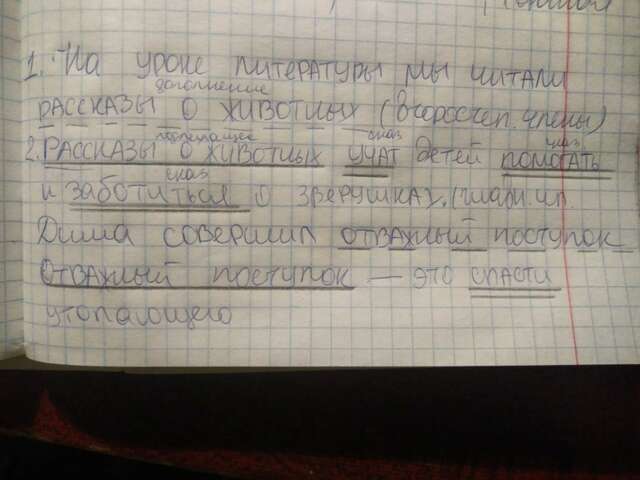 1. На уроке литературы мы читали
дополнение
рассказы о животных (второстеп. члены)
подлежащее сказ сказ
2. Рассказы о животных учат детей помогать
сказ
и заботиться о зверушках. (главн. чл.
Дима совершил отважный поступок
Отважный поступок — это спасти
утопающего